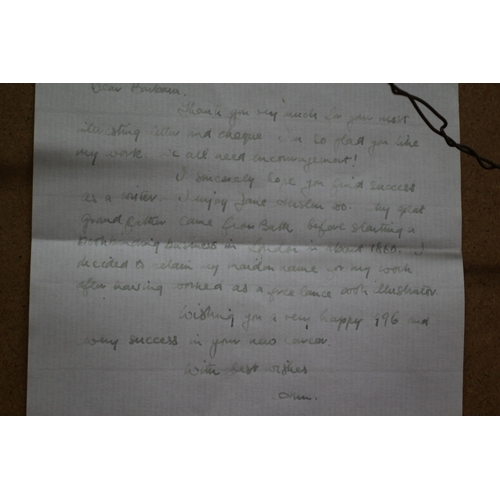 Dear Barbara.
Thank you very much for your most
interesting letter and cheque I'm so glad you like
my work. We all need encouragement!
I sincerely hope you find success
as a writer. I enjoy Jane Austen too. My great
Grand father came from Bath before starting a
Bookbinding business in London in about 1860. I
decided to reclaim my maiden name for my work
after having worked as a free lance book illustrator
Wishing you a very happy 1996 and
every success in your new career.
With best wishes